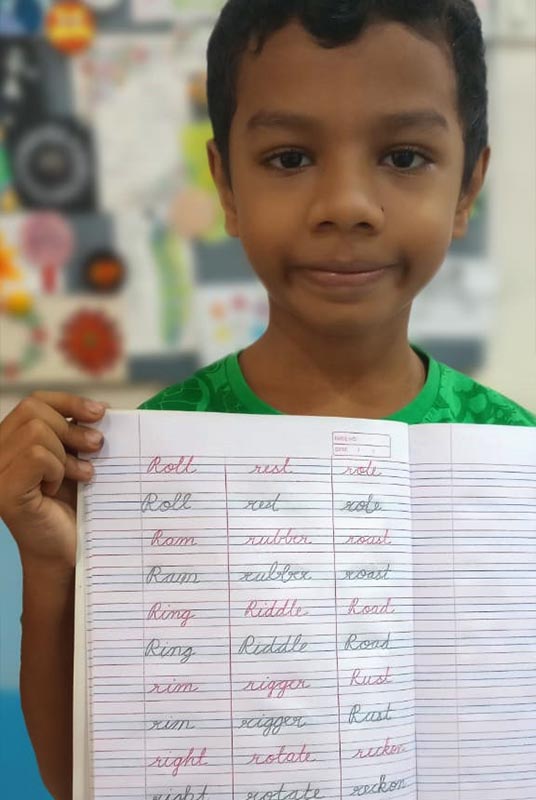 PAGE NO.
DATE
Roll rest role
Roll rest role
Ram rubber roast
Ram rubber roast
Ring Riddle Road
Ring Riddle Road
rim rigger Rust
rim rigger Rust
right rotate reckon
right rotate reckon